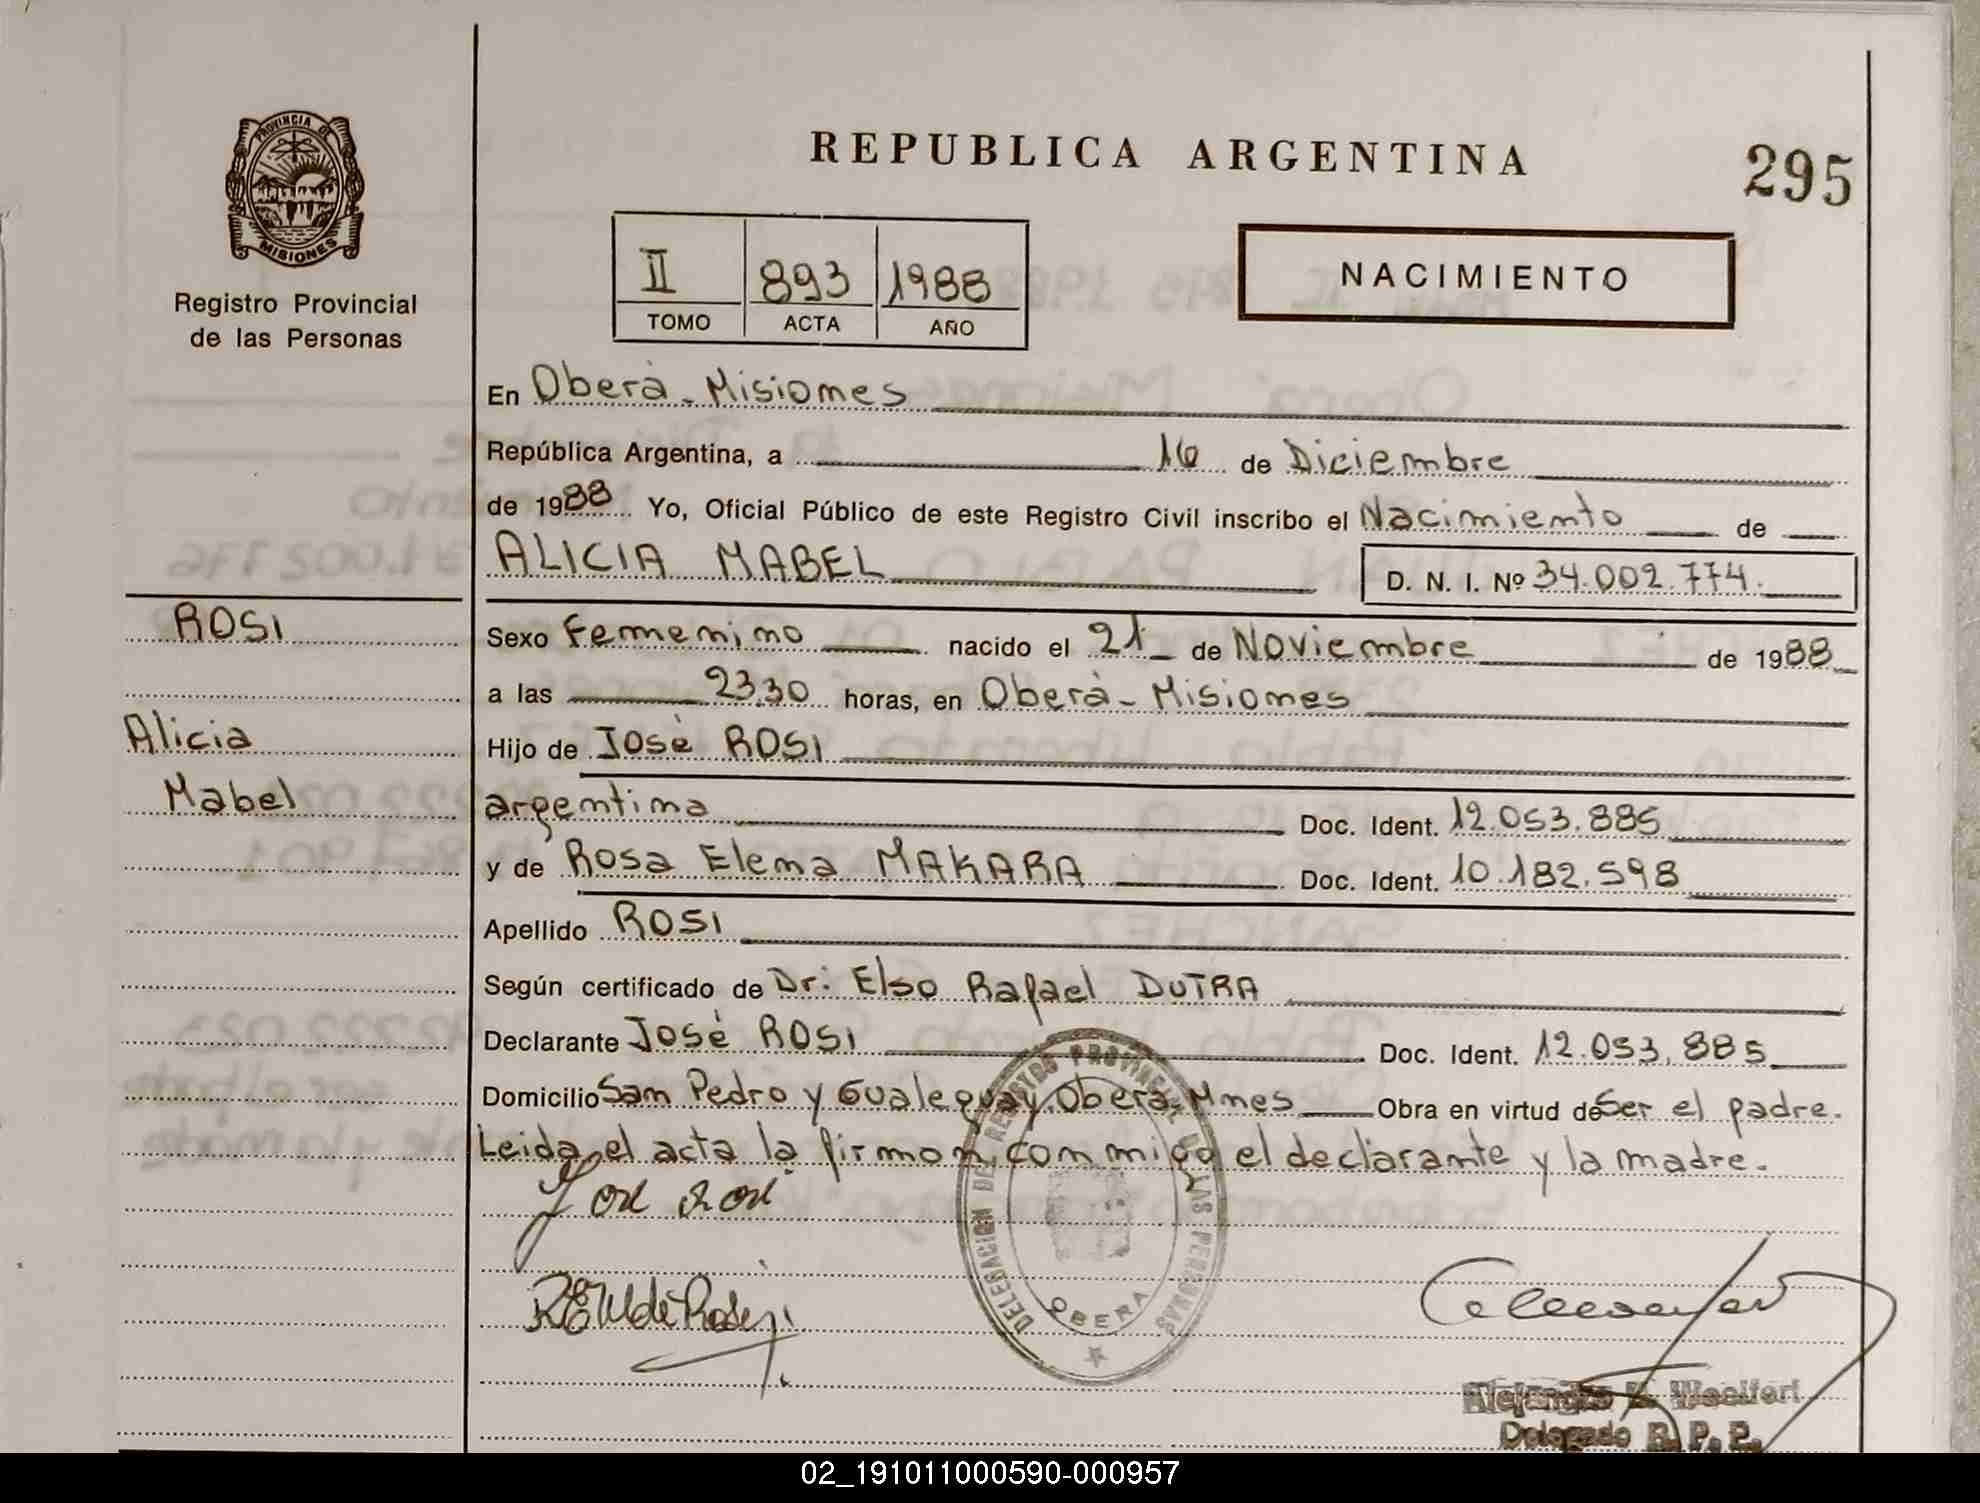 PROVINCIA DE
MISIONES
Registro Provincial
de las Personas
REPUBLICA ARGENTINA
295
II 893 1988
TOMO ACTA AÑO
NACIMIENTO
En Oberà - Misiones
República Argentina, a 16 de Diciembre
de 1988 Yo, Oficial Público de este Registro Civil inscribo el Nacimiento de
ALICIA MABEL D. N. I. Nº 34.002.774.
ROSI
Alicia
Mabel
Sexo Femenino nacido el 21 de Noviembre de 1988
a las 23.30 horas, en Oberà - Misiones
Hijo de José ROSI
argentina Doc. Ident. 12.053.885
y de Rosa Elena MAKARA Doc. Ident. 10.182.598
Apellido ROSI
Según certificado de Dr: Elso Rafael DUTRA
Declarante José ROSI Doc. Ident. 12.053.885
Domicilio San Pedro y Gualeguay. Oberà - Mnes Obra en virtud de Ser el padre.
Leida el acta la firman conmigo el declarante y la madre.
DELEGACION DEL REGISTRO PROVINCIAL DE LAS PERSONAS
OBERA
Delegado R. P. P.
02_191011000590-000957